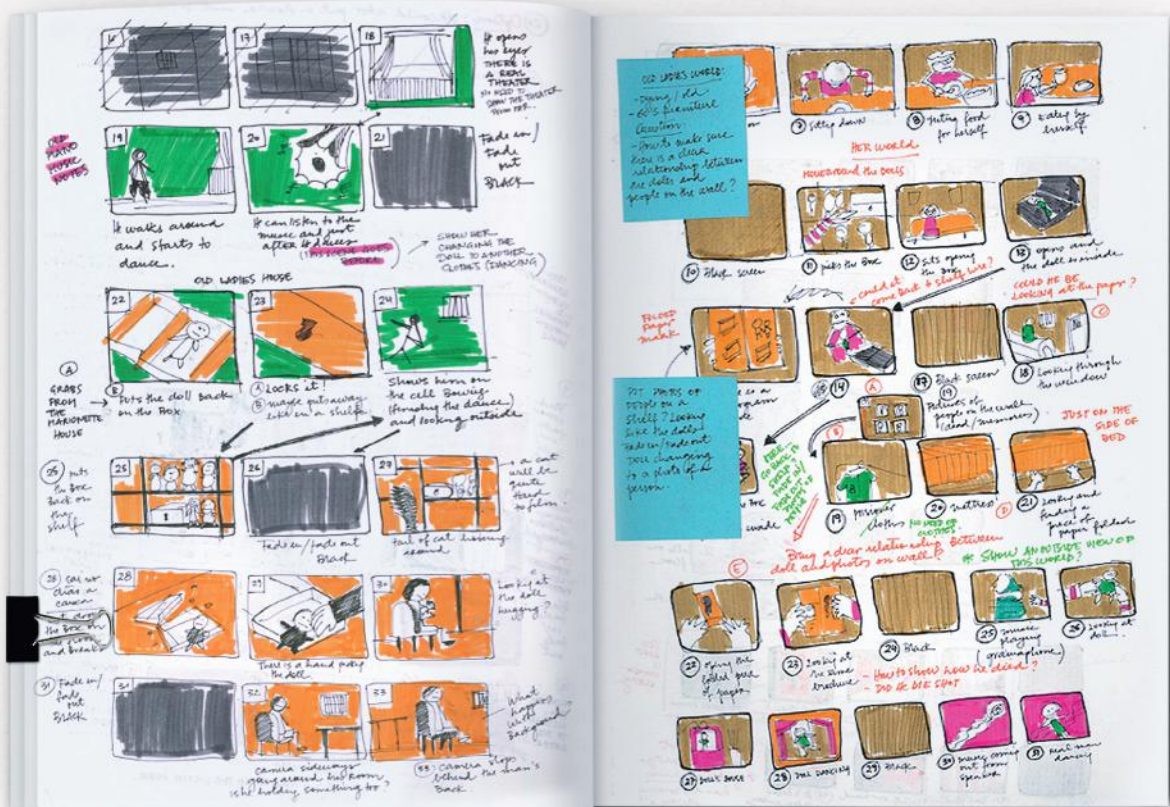 16
17
18
It opens
his eyes
THERE IS
A REAL
THEATER
NO NEED TO
SHOW THE THEATER
FROM FAR
19
20
21
OLD
PIANO
MUSIC
NOTES
Fade in/
Fade
out
BLACK
It walks around
and starts to
dance.
It can listen to the
music and just
after it dances
(THIS SCENE GOES
BEFORE)
SHOW HER
CHANGING THE
DOLL TO ANOTHER
CLOTHES (DANCING)
OLD LADIES HOUSE
22
23
24
A
GRABS
FROM
THE
MARIONETTE
HOUSE
B
Puts the doll back
on the Box
A LOCKS it!
B maybe put away
like in a shelf
Shows him on
the cell Bowing
(finishing the dance)
and looking outside
25 puts
the Box
Back on
the
shelf
25
26
27
a cat
will be
quite
Hard
to film.
Fade in/fade out
Black
tail of cat hissing
around
28
28
29
30
the Box on
the floor
and breaks
There is a hand picking
the doll.
Looking at
the doll
hugging?
31 Fade in/
fade
out
BLACK
31
32
33
What
happens
with
Background
camera sideways
going around the room
is he holding something too?
33: camera stops
behind the man's
Back
OLD LADIES WORLD:
- Dying / old
- 60's furniture
Question
- How to make sure
there is a clear
relationship between
the dolls and
people on the wall?
7 Sitting down
8 Puting food
for herself
9 Eating by
herself
HER WORLD
MOVE AROUND THE DOLLS
10 Black screen
11 picks the Box
12 Sits opening
the Box
13 opens and
the doll is inside
could it
come back to shelf here?
COULD HE BE
LOOKING AT the paper?
FOLDED
Paper
mark
C
14
A
17 Black screen
18 Looking through
the window
PUT PHOTOS OF
PEOPLE ON A
SHELF? Looking
like the dolls
Fade in/Fade out
DOLL changing
to a photo of a
person.
19
Pictures of
people on the wall
(dead/memories)
JUST ON THE
SIDE OF
BED
B
HERE...
GO BACK TO
SHELF &
FADE IN/
FADE OUT
19 Prisoner
cloths
NO NEED OF
CLOTHES
20 mattress
D
21 Looking and
finding a
piece of
paper folded
Bring a clear relationship between
doll and photos on wall?
* SHOW AN OUTSIDE VIEW OF
THIS WORLD?
E
22 Opening the
folded piece
of paper
23 Looking at
the same
brochure
24 Black
25 music
playing
(gramophone)
26 Looking at
doll
- How to show how he died?
- DID HE DIE SHOT
27 DOLL'S HOUSE
28 DOLL DANCING
29 Black
30 music coming
out from
speaker
31 Real man
dancing